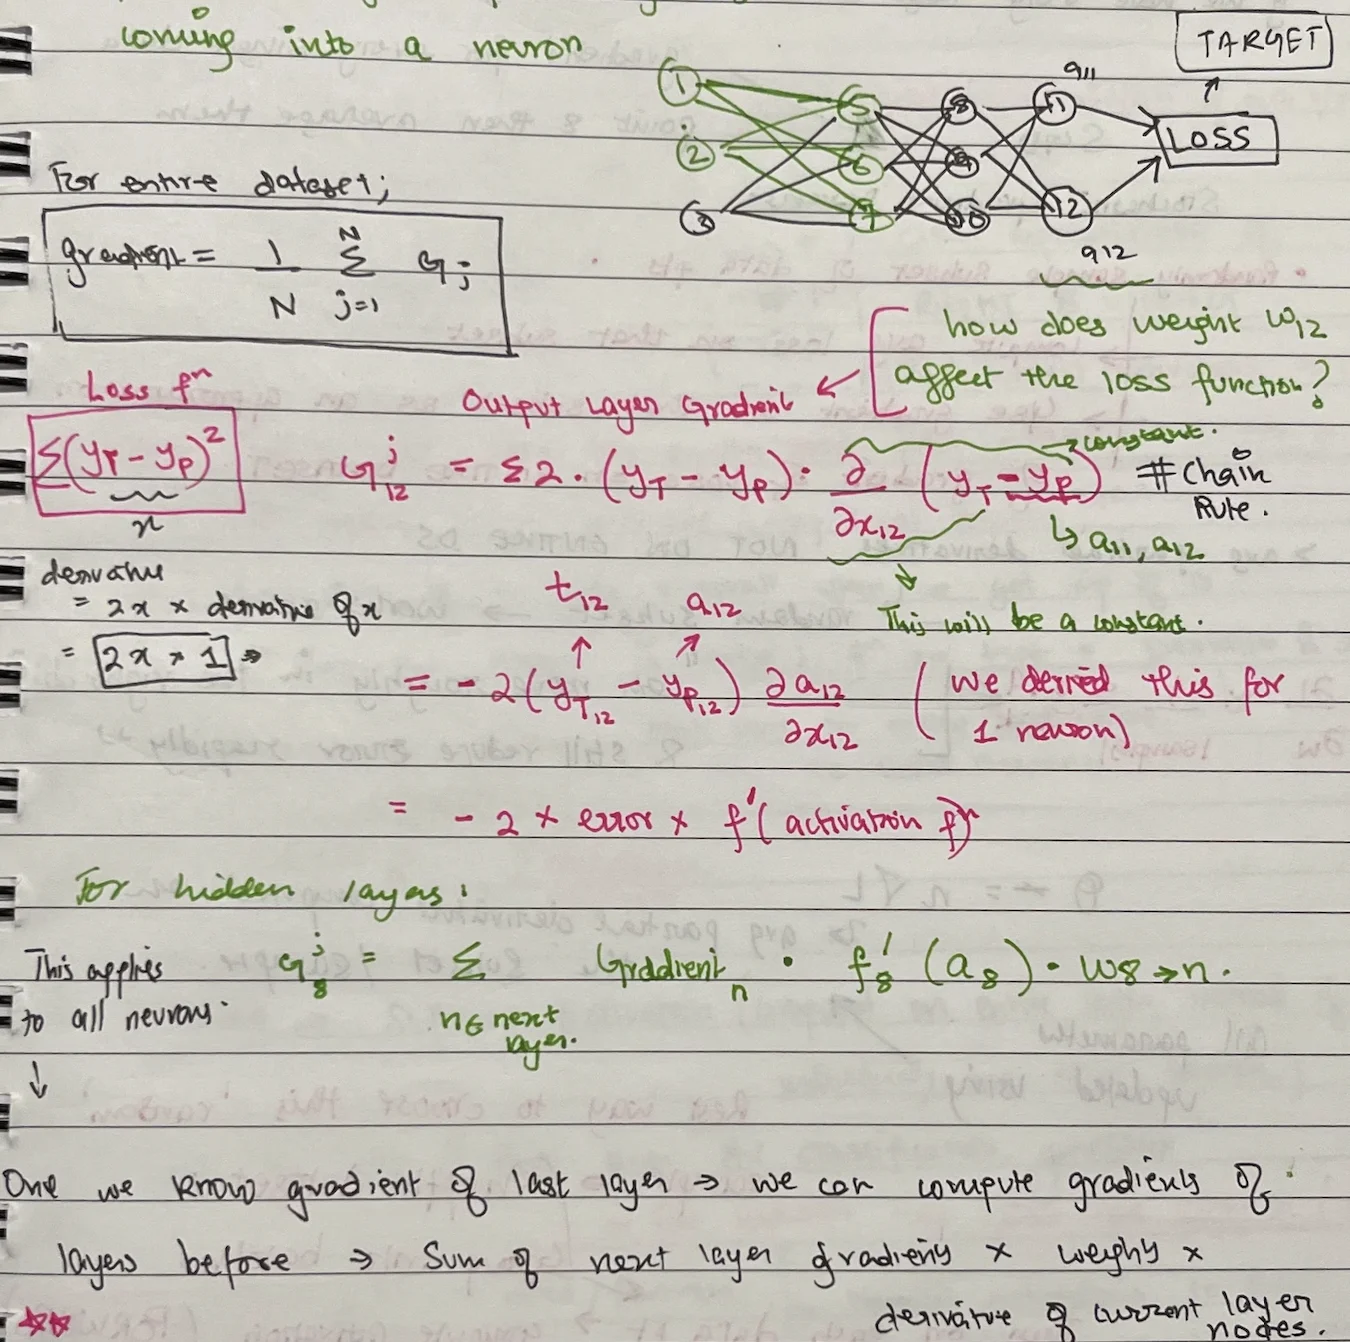 coming into a neuron
TARGET
a11
1 5 8 11
LOSS
2 6 9
3 7 10 12
a12
For entire dataset;
gradient = 1/N Σ j=1 N Gj
how does weight W12
affect the loss function?
Loss fⁿ
Output Layer Gradient
Σ(yT - yP)²
x
constant.
G12^j = Σ2 · (yT - yP) · ∂/∂x12 (yT - yP) # Chain Rule.
↳ a11, a12
derivative
= 2x × derivative of x
= 2x × 1
t12 a12
This will be a constant.
= - 2 (yT12 - yP12) ∂a12/∂x12 (we derived this for
1 neuron)
= - 2 × error × f'(activation fⁿ)
For hidden layers:
This applies
to all neurons.
G8^j = Σ n∈next layer. Gradient n · f8'(a8) · w8→n.
↓
One we know gradient of last layer → we can compute gradients of
layers before → Sum of next layer gradients × weights ×
derivative of current layer
nodes.